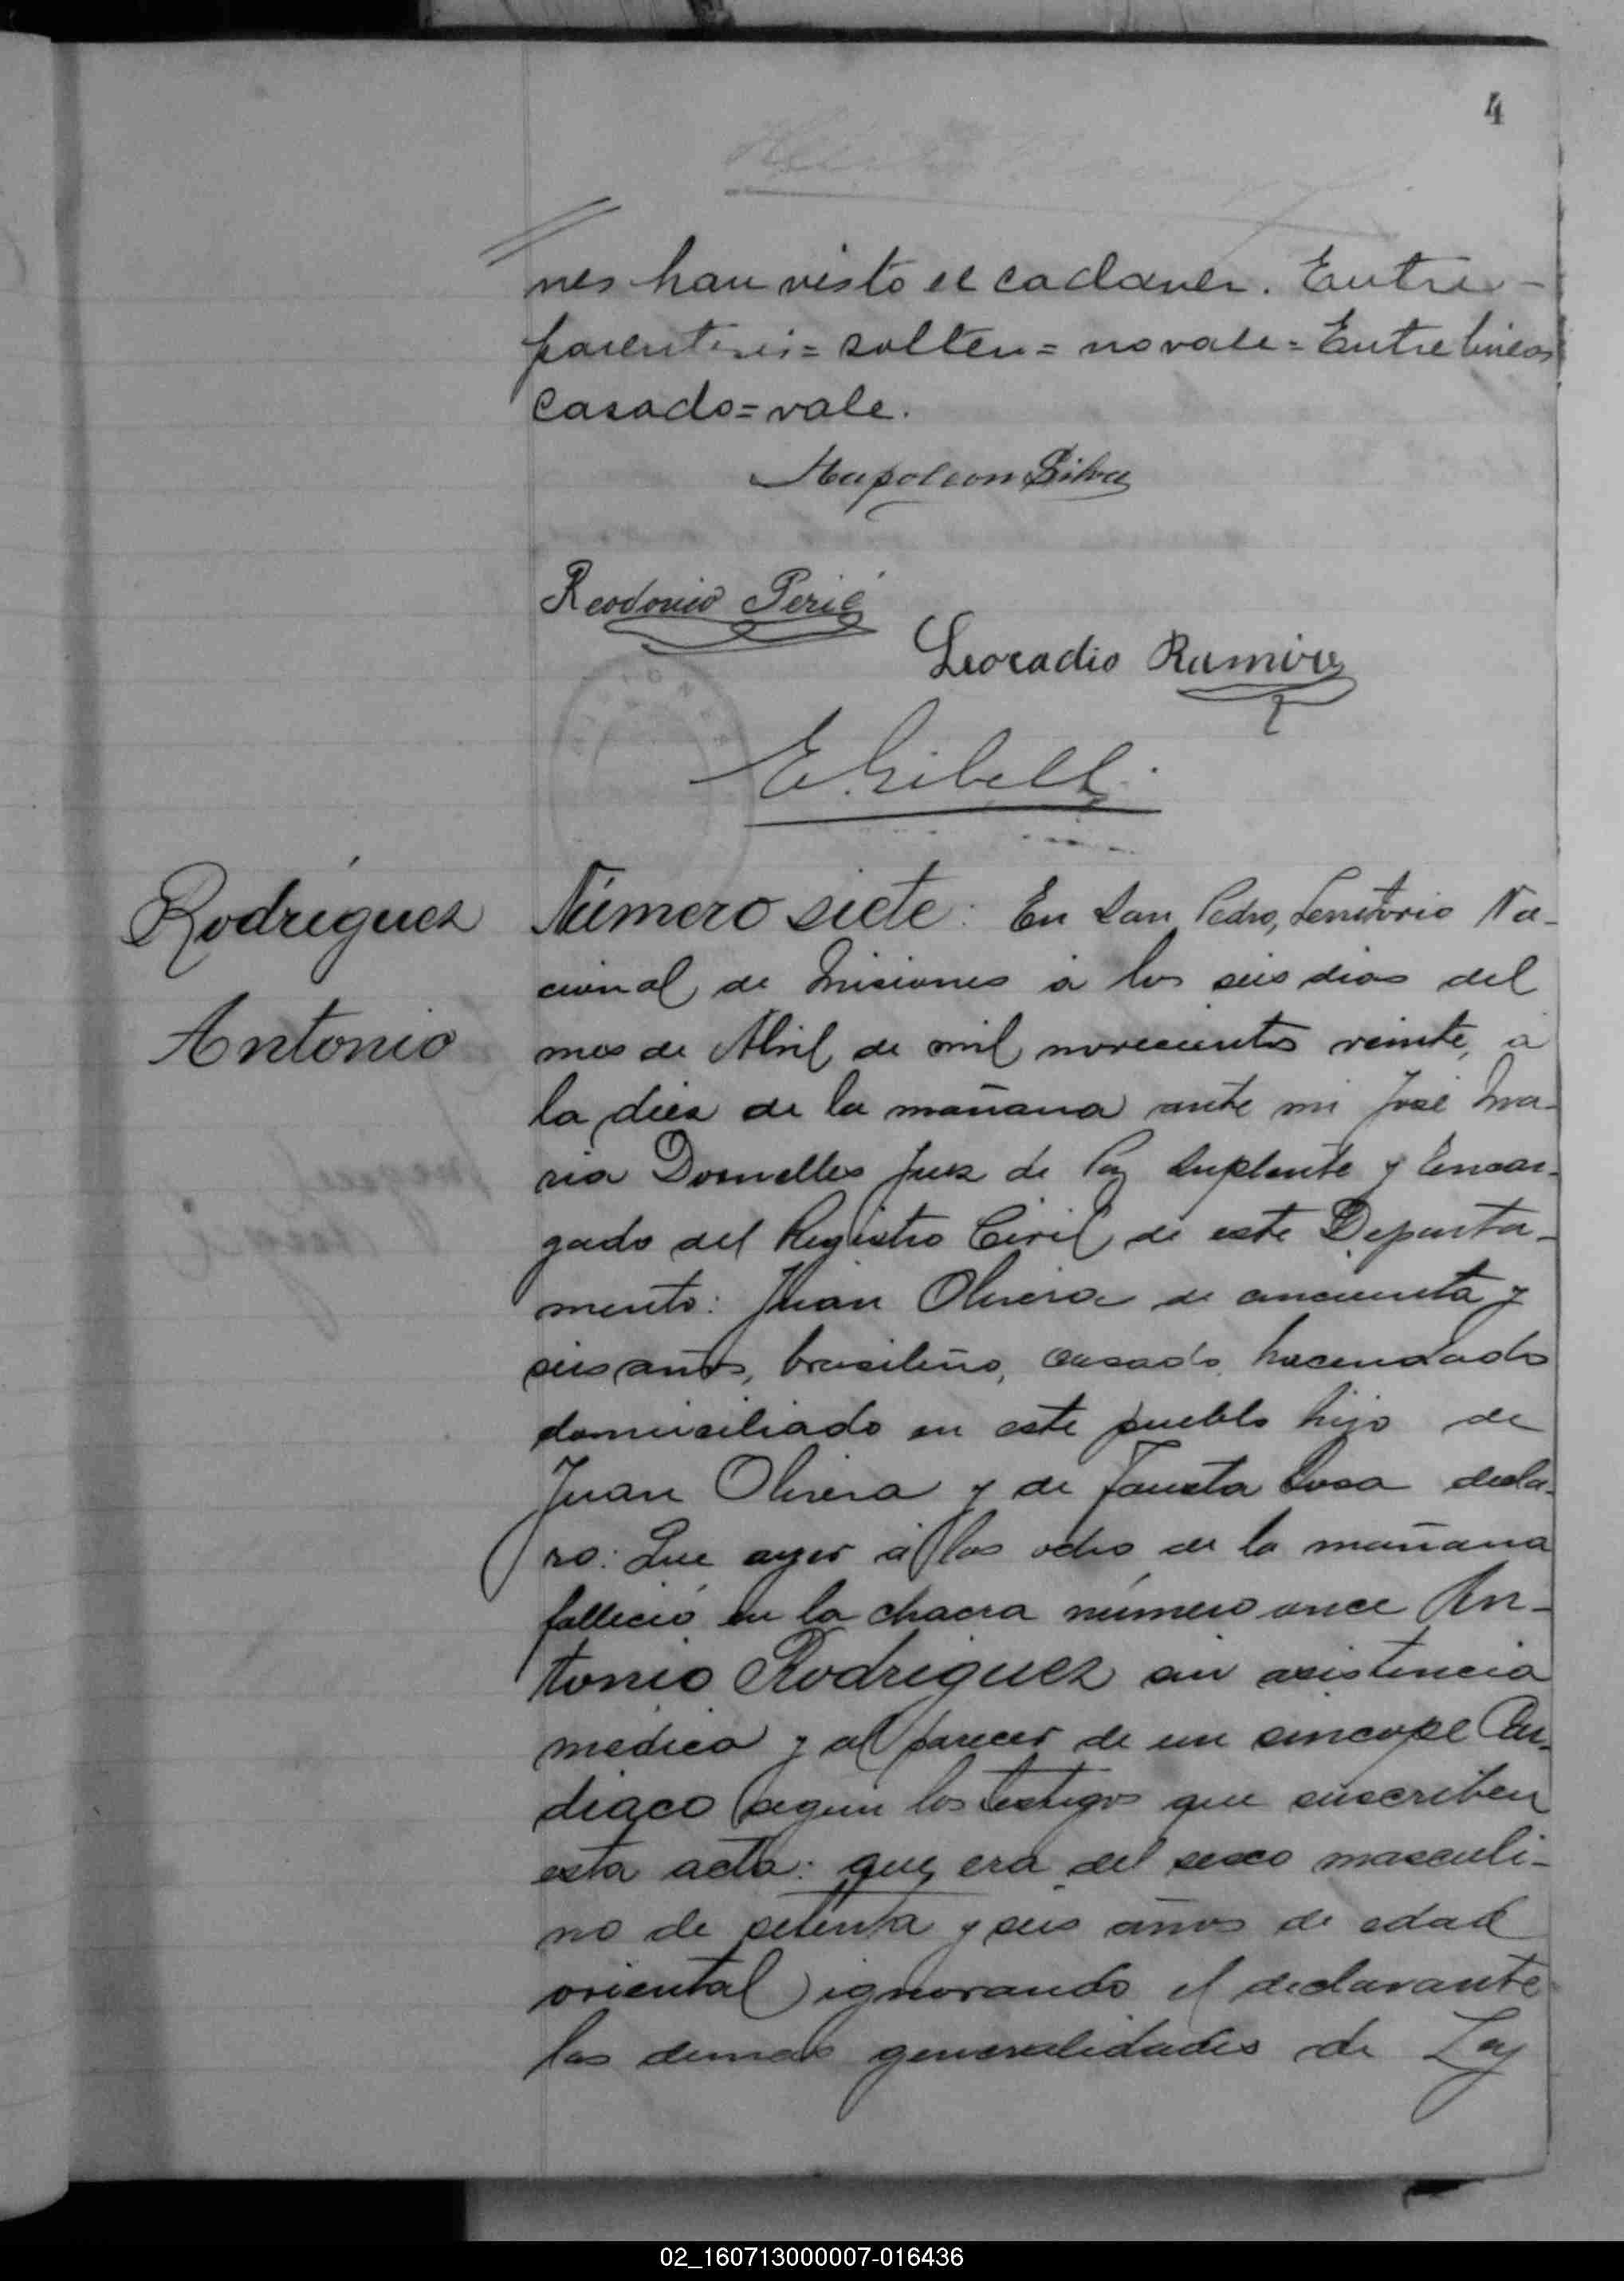 4
nes han visto el cadaver. Entre-
parentesis = solten = no vale = Entre lineas
casado = vale.
Napoleon Silva
Reodonio Perié
Leocadio Ramirez
Rodriguez
Antonio
Número siete: En San Pedro, Territorio Na-
cional de Misiones á los seis dias del
mes de Abril de mil novecientos veinte, á
la diez de la mañana ante mi José Ma-
ria Dornelles Juez de Paz Suplente y Encar-
gado del Registro Civil de este Departa-
mento: Juan Olivera de cincuenta y
seis años, brasileño, casado, hacendado
domiciliado en este pueblo hijo de
Juan Olivera y de Fausta Sosa decla-
ro: Que ayer á las ocho de la mañana
falleció en la chacra número once An-
tonio Rodriguez sin asistencia
medica y al parecer de un sincope Car-
diaco segun los testigos que suscriben
esta acta: que era del sexo masculi-
no de setenta y seis años de edad
oriental ignorando el declarante
las demas generalidades de Ley
02_160713000007-016436